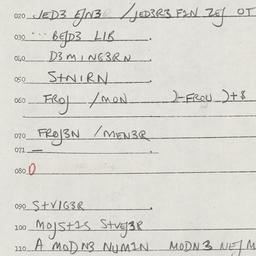 020 JED3 EJN3 /JED3R3 F1N ZEJ OT
030 BEJD3 LIB
040 D3MIN63RN
050 S+NIRN
060 FROJ /MON )-FROU )+8
070 FROJ3N /MEN3R
071 —
080 0
090 S+VIG3R
100 MOJS+1S S+VEJ3R
110 A MODN3 NUMIN MODN3 NEJM